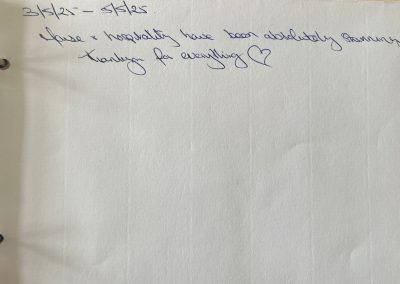 3/5/25 - 5/5/25.
House & hospitality have been absolutely stunning
thankyou for everything ♡